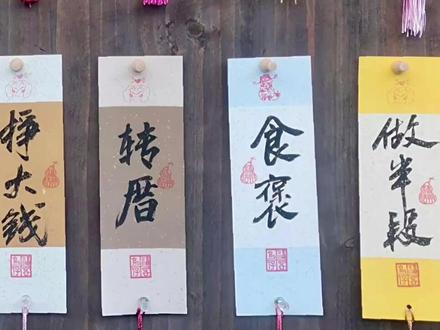 挣大钱
转厝
食褒
做半段